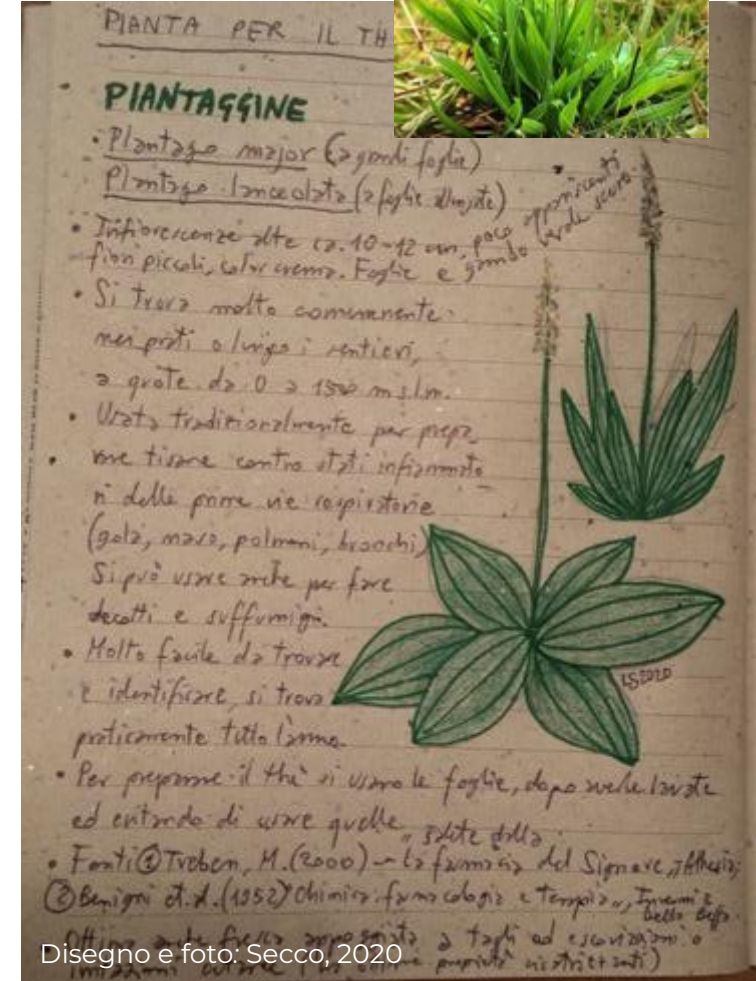 PIANTA PER IL TH
PIANTAGGINE
• Plantago major (a grandi foglie)
Plantago lanceolata (a foglie allungate)
• Infiorescenze alte ca. 10-12 cm, poco appariscenti
fiori piccoli, color crema. Foglie e gambo verde scuro.
• Si trova molto comunemente
nei prati o lungo i sentieri,
a quote da 0 a 1500 m s.l.m.
• Usata tradizionalmente per prepa
rare tisane contro stati infiammato
ri delle prime vie respiratorie
(gola, naso, polmoni, bronchi)
Si può usare anche per fare
decotti e suffumigi.
• Molto facile da trovare
e identificare, si trova
praticamente tutto l'anno.
LS2020
• Per preparare il thè si usano le foglie, dopo averle lavate
ed evitando di usare quelle
• Fonti ① Treben, M. (2000) - La farmacia del Signore,
② Benigni et al. (1952) Chimica farmacologia e terapia", Inverni e
Della Beffa.
anche fresca appoggiata a tagli ed escoriazioni o
Disegno e foto: Secco, 2020